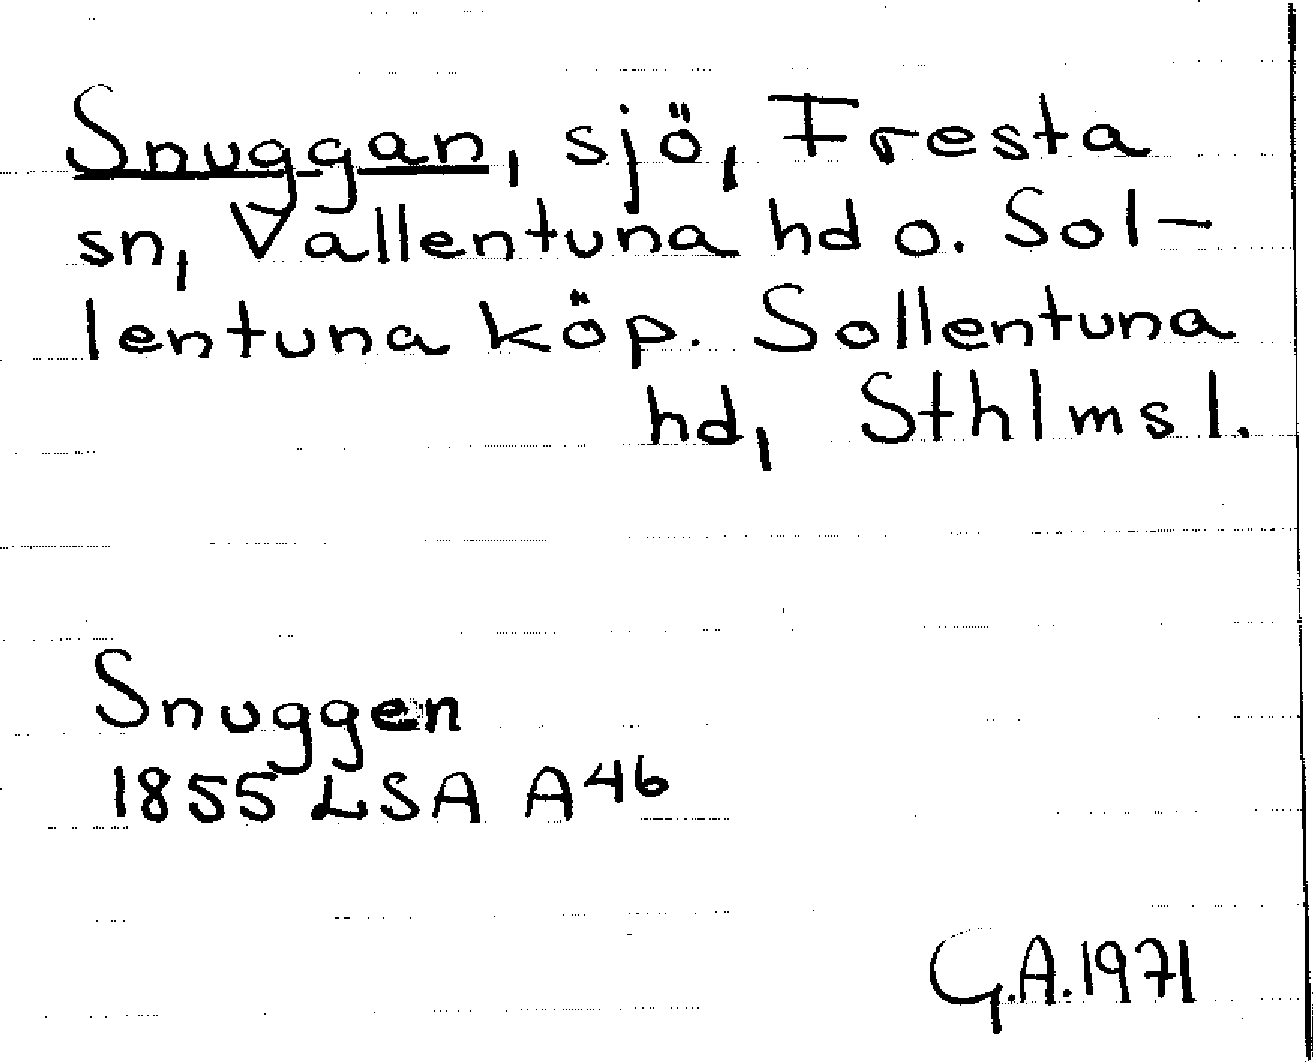 Snuggan, sjö, Fresta
sn, Vallentuna hd o. Sol-
lentuna köp. Sollentuna
hd, Sthlms l.
Snuggen
1855 LSA A46
G.A. 1971